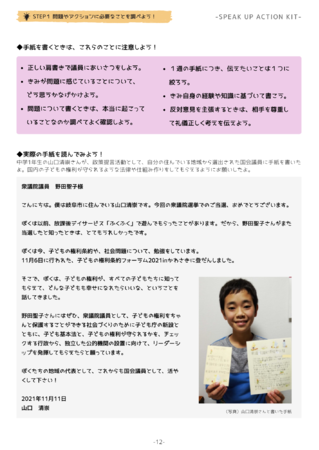 STEP1 問題やアクションに必要なことを調べよう!
-SPEAK UP ACTION KIT-
◆手紙を書くときは、これらのことに注意しよう!
• 正しい肩書きで議員にあいさつをしよう。
• きみが問題に感じていることについて、
どう思うかなげかけよう。
• 問題について書くときは、本当に起こって
いることなのか調べてよく確認しよう。
• 1通の手紙につき、伝えたいことは1つに
絞ろう。
• きみ自身の経験や知識に基づいて書こう。
• 反対意見を主張するときは、相手を尊重し
て礼儀正しく考えを伝えよう。
◆実際の手紙を読んでみよう!
中学1年生の山口清崇さんが、政策提言活動として、自分の住んでいる地域から選出された国会議員に手紙を書いた
よ。国内の子どもの権利が守られるような法律や仕組み作りをしてもらえるようにお願いしたよ。
衆議院議員 野田聖子様
こんにちは。僕は岐阜市に住んでいる山口清崇です。今回の衆議院選挙でのご当選、おめでとうございます。
ぼくは以前、放課後デイサービス「ふくふく」で遊んでもらったことがあります。だから、野田聖子さんがまた
当選したと知ったときは、とてもうれしかったです。
ぼくは今、子どもの権利条約や、社会問題について、勉強をしています。
11月6日に行われた、子どもの権利条約フォーラム2021inかわさきに参加しました。
そこで、ぼくは、子どもの権利が、すべての子どもたちに知って
もらえて、どんな子どもも幸せになれたらいいな、ということを
話してきました。
野田聖子さんにはぜひ、衆議院議員として、子どもの権利をちゃ
んと保護することができる社会づくりのために子ども庁の新設と
ともに、子ども基本法と、子どもの権利が守られるかを、チェッ
クする行政から、独立した公的機関の設置に向けて、リーダーシ
ップを発揮してもらえたらと願っています。
ぼくたちの地域の代表として、これからも国会議員として、活や
くして下さい!
2021年11月11日
山口 清崇
(写真)山口清崇さんと書いた手紙
-12-